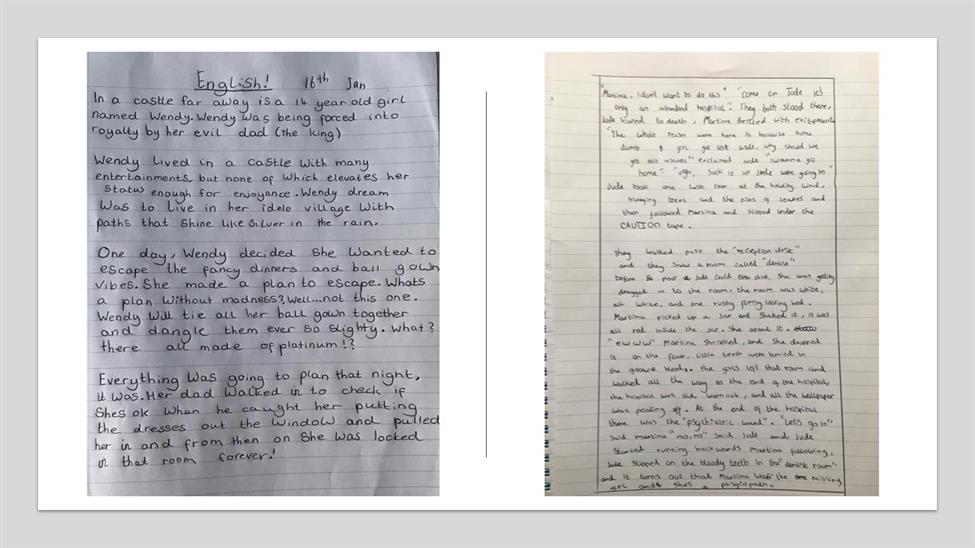 English! 16th Jan
In a castle far away is a 14 year old girl
named Wendy. Wendy was being forced into
royalty by her evil dad (the king)
Wendy lived in a castle with many
entertainments, but none of which elevates her
status enough for enjoyance. Wendy dream
was to live in her idele village with
paths that shine like silver in the rain.
One day, Wendy decided she wanted to
escape the fancy dinners and ball gown
vibes. She made a plan to escape. Whats
a plan without madness? Well...not this one.
Wendy will tie all her ball gown together
and dangle them ever so slighty. What?
there all made of platinum!?
Everything was going to plan that night,
it was. Her dad walked in to check if
shes ok when he caught her putting
the dresses out the window and pulled
her in and from then on she was locked
in that room forever!
"Martina, I don't want to do this" "Come on Jude it's
only an hospital". They both stood there,
Jude scared to death, Martina with
"The whole reason were here is because some
dumb girl got lost, why should we
get exclaimed Jude "I wanna go
home" "ugh, suck it up Jude were going in"
Jude took one last look at the wind,
trees and the piles of leaves and
then followed Martina and slipped under the
CAUTION tape.
They walked past the "reception desk"
and they saw a room called "dentist"
before Jude could even, she was getting
dragged in to the room. the room was white,
all white, and one rusty looking bed.
Martina picked up a jar and shaked it, it was
all red inside the jar. She opend it.
"ewww" Martina shrieked, and she dropped
it on the floor. little teeth were buried in
the blood. the girls left that room and
walked all the way to the end of the hospital,
the hospital was old, worn out, and all the wallpaper
was pealing off. At the end of the hospital
there was the "psychiatric ward". "Let's go in"
said martina "no, no" said Jude and Jude
started running backwards Martina following,
Jude slipped on the bloody teeth in the "dentist room"
and it turns out that Martina was the missing
girl and shes a phsycopath.